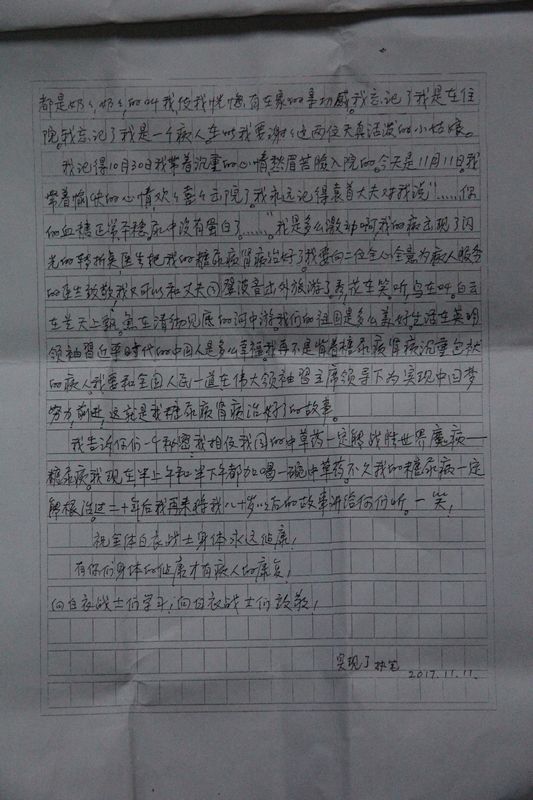 都是奶奶、奶奶的叫我,使我恍惚有在家的亲切感,我忘记了我是在住
院,我忘记了我是一个病人,在此我要谢谢这两位天真活泼的小姑娘。
我记得10月30日我带着沉重的心情愁眉苦脸入院的。今天是11月11日,我
带着愉快的心情欢欢喜喜出院了。我永远记得袁大夫对我说“……你
的血糖正常,尿中没有蛋白了……”。我是多么激动啊,我的病出现了闪
光的转折,是医生把我的糖尿病肾病治好了,我要向二位全心全意为病人服务
的医生致敬,我又可以和丈夫出外旅游了。看,花在笑,听,鸟在叫。白云
在蓝天上飘,鱼在清彻见底的河中游,我们的祖国是多么美好,生活在英明
领袖习近平时代的中国人是多么幸福,我再不是背着糖尿病肾病沉重包袱
的病人,我要和全国人民一道在伟大领袖习主席领导下为实现中国梦
努力前进,这就是我糖尿病肾病治好了的故事。
我告诉你们一个秘密,我相信我国的中草药一定能战胜世界魔病—
糖尿病,我现在半上午和半下午都加喝一碗中草药。不久我的糖尿病一定
能根治。过二十年后我再来将我八十岁以后的故事讲给你们听。一笑!
祝全体白衣战士身体永远健康!
有你们身体的健康才有病人的康复!
向白衣战士们学习!向白衣战士们致敬!
执笔
2017.11.11.